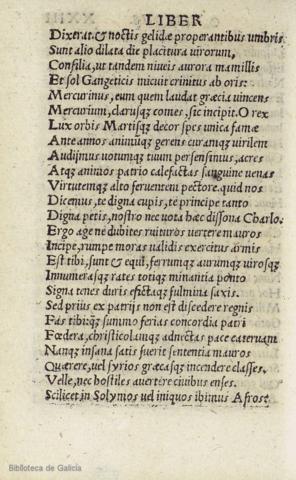 LIBER
Dixerat: & noctis gelidæ properantibus umbris
Sunt alio dilata die placitura uirorum,
Consilia, ut tandem niueis aurora mamillis
Et sol Gangeticis micuit crinitus ab oris:
Mercurinus, eum quem laudat græcia uincens
Mercurium, clarusq; comes, sic incipit. O rex
Lux orbis Martisq; decor spes unica famæ
Ante annos animūq; gerens curamq; uirilem
Audijmus uotumq; tuum persensimus, acres
Atq; animos patrio calefactas sanguine uenas
Virtutemq; alto feruentem pectore. quid nos
Dicemus, te digna cupis, te principe tanto
Digna petis, nostro nec uota hæc dissona Charlo.
Ergo age ne dubites ruituros uertere mauros
Incipe, rumpe moras ualidis exercitus armis
Est tibi, sunt & equi, ferrumq; aurumq; uirosq;
Innumerasq; rates totiq; minantia ponto
Signa tenes duris efictaq; fulmina saxis.
Sed prius ex patrijs non est discedere regnis
Fas tibi: q; summo ferias concordia patri
Fœdera, christicolamq; adnectas pace cateruam
Nanq; insana satis fuerit sententia mauros
Quærere, uel syrios græcasq; incendere classes.
Velle, nec hostiles auertere ciuibus enses.
Scilicet in Solymos uel iniquos ibimus Afros
Biblioteca de Galicia